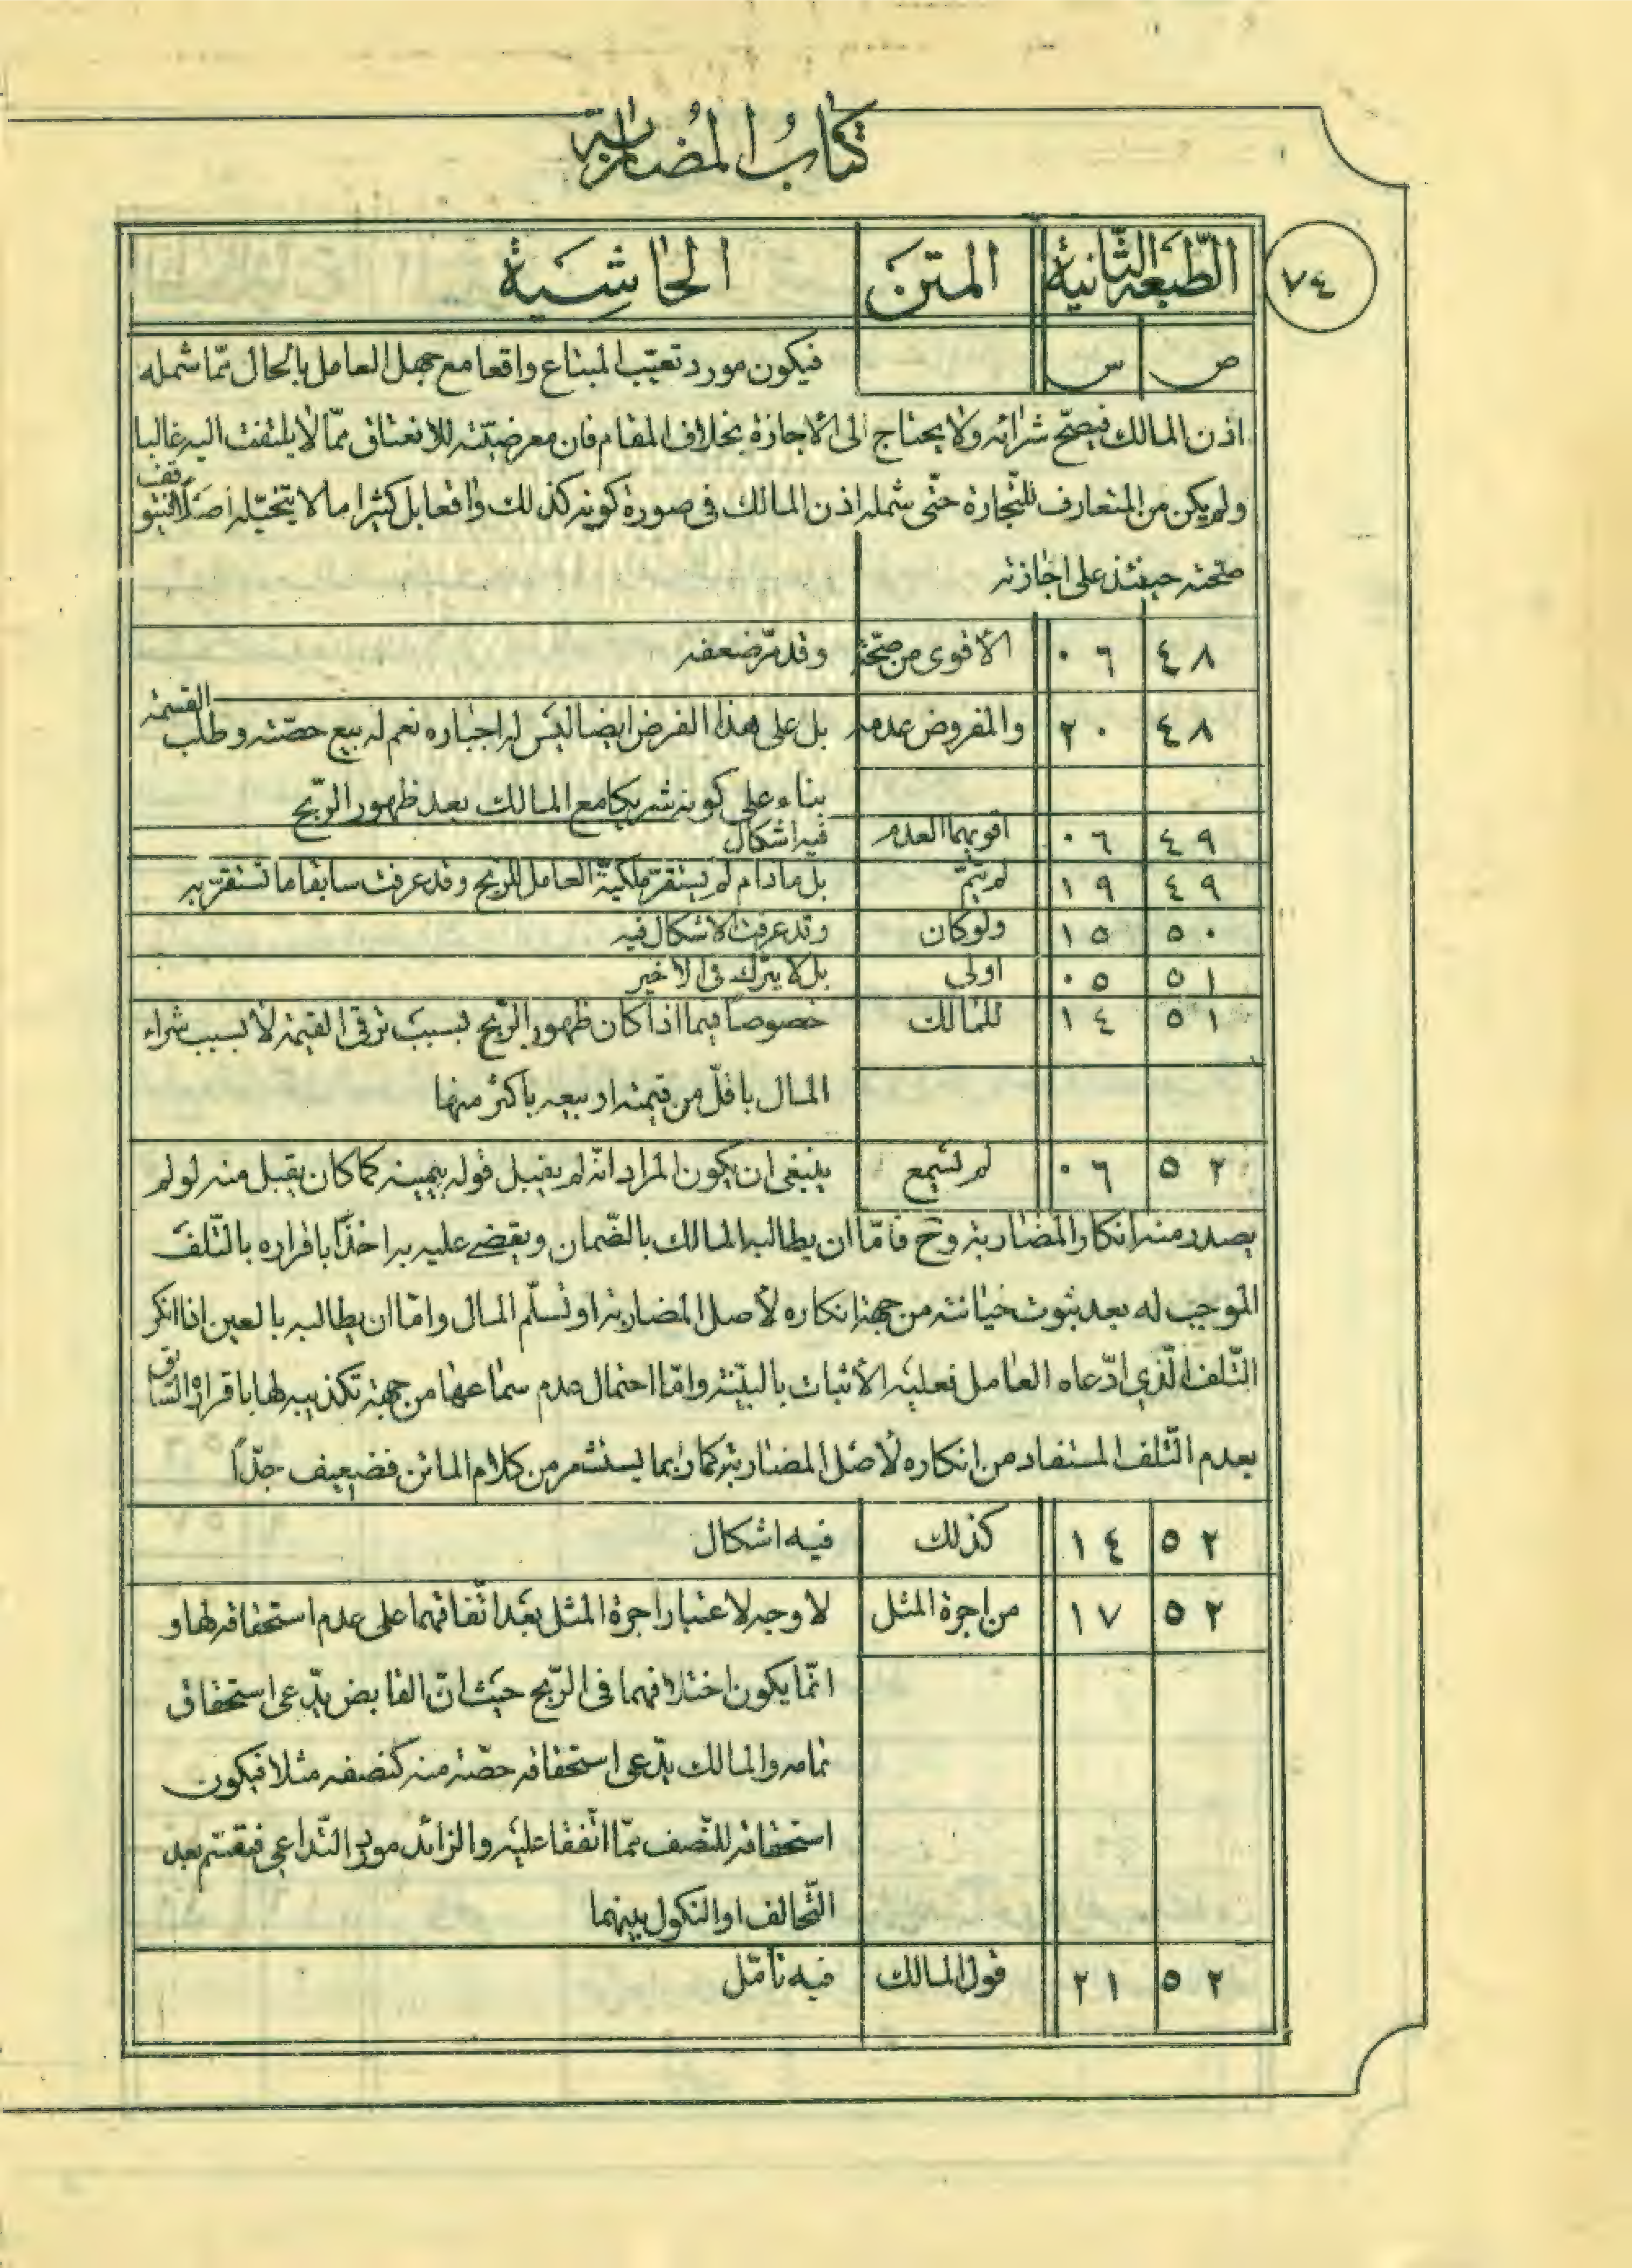 كتاب المضاربة
٧٤
الطبعة الثانية المتن الحاشية
ص س فيكون مورد تعيّب المبتاع واقعا مع جهل العامل بالحال ممّا شمله
اذن المالك فيصحّ شرائه ولا يحتاج الى الاجازة بخلاف المقام فان معرضيّته للانعتاق ممّا لا يلتفت اليه غالبا
ولم يكن من المتعارف للتّجارة حتّى شمله اذن المالك فى صورة كونه كذلك واقعا بل كثيرا ما لا يتخيّله اصلًا فيتوقف
صحّته حينئذ على اجازته
٤٨ ٠٦ الأقوى من صحّته وقد مرّ ضعفه
٤٨ ٢٠ والمفروض عدمه بل على هذا الفرض ايضا ليس له اجباره نعم له بيع حصّته وطلب القسمة
بناء على كونه شريكا مع المالك بعد ظهور الرّبح
٤٩ ٠٦ اقويهما العدم فيه اشكال
٤٩ ١٩ لم يتمّ بل مادام لم يستقرّ ملكيّة العامل للرّبح وقد عرفت سابقا ما تستقرّ به
٥٠ ١٥ ولو كان وقد عرفت الاشكال فيه
٥١ ٠٥ اولى بل لا يترك فى الاخير
٥١ ١٤ للمالك خصوصًا فيما اذا كان ظهور الرّبح بسبب ترقى القيمة لا بسبب شراء
المال باقلّ من قيمته او بيعه باكثر منها
٥٢ ٠٦ لم تسمع ينبغى ان يكون المراد انّه لم يقبل قوله بيمينه كما كان يقبل منه لو لم
يصدر منه انكار المضاربة وح فامّا ان يطالبه المالك بالضّمان ويقضى عليه به اخذًا باقراره بالتّلف
الموجب له بعد ثبوت خيانته من جهة انكاره لأصل المضاربة او تسلّم المال وامّا ان يطالبه بالعين اذا انكر
التّلف الّذى ادّعاه العامل فعليه الأثبات بالبيّنة وامّا احتمال عدم سماعها من جهة تكذيبه لها باقراره السّابق
بعدم التّلف المستفاد من انكاره لأصل المضاربة كما ربما يستشعر من كلام الماتن فضعيف جدّاً
٥٢ ١٤ كذلك فيه اشكال
٥٢ ١٧ من اجرة المثل لا وجه لاعتبار اجرة المثل بعد اتّفاقهما على عدم استحقاقه لها و
انّما يكون اختلافهما فى الرّبح حيث انّ القابض يدّعى استحقاق
تمامه والمالك يدّعى استحقاقه حصّة منه كنصفه مثلا فيكون
استحقاقه للنّصف ممّا اتّفقا عليه والزائد مورد التّداعى فيقسّم بعد
التّحالف او النكول بينهما
٥٢ ٢١ قول المالك فيه تأمّل